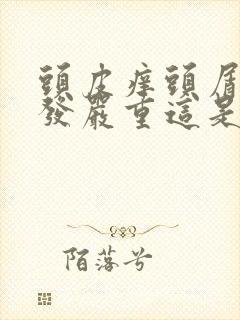 頭皮癢頭屑
發嚴重這是
陌落兮